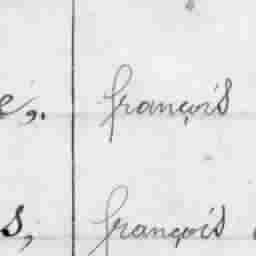 e, françois
s, françois